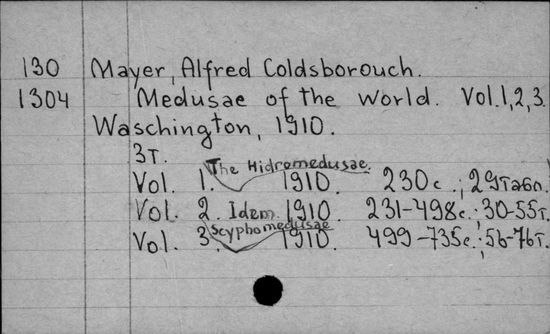 130 Mayer, Alfred Coldsborouch.
1304 Medusae of the World. Vol.1,2,3.
Waschington, 1910.
3т.
The Hidromedusae.
Vol. 1. 1910. 230с.; 29табл.
Vol. 2. Idem. 1910. 231-498с.; 30-55т.
Scyphomedusae
Vol. 3. 1910. 499-735с.; 56-76т.